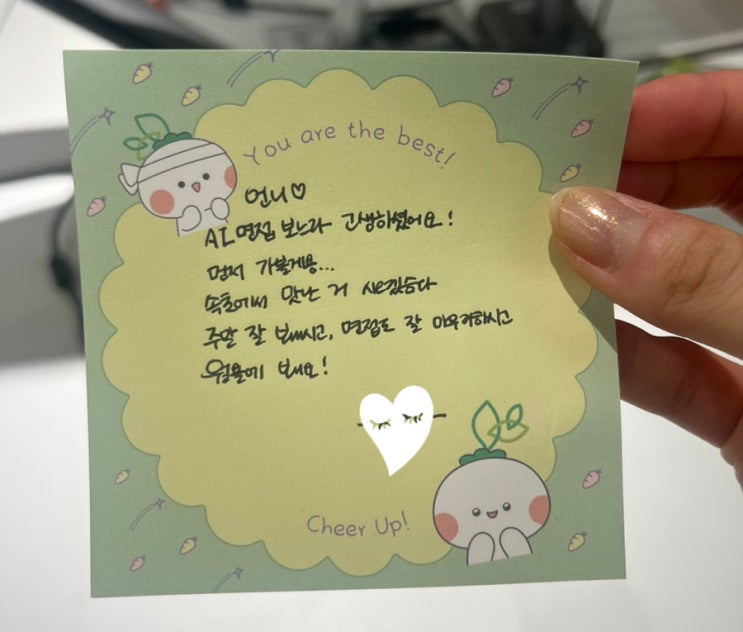 You are the best!
언니♡
AI 면접 보느라 고생하셨어요!
먼저 가볼게용...
속초에서 맛난 거 사오겠습다
주말 잘 보내시고, 면접도 잘 마무리하시고
월욜에 봬요!
Cheer Up!